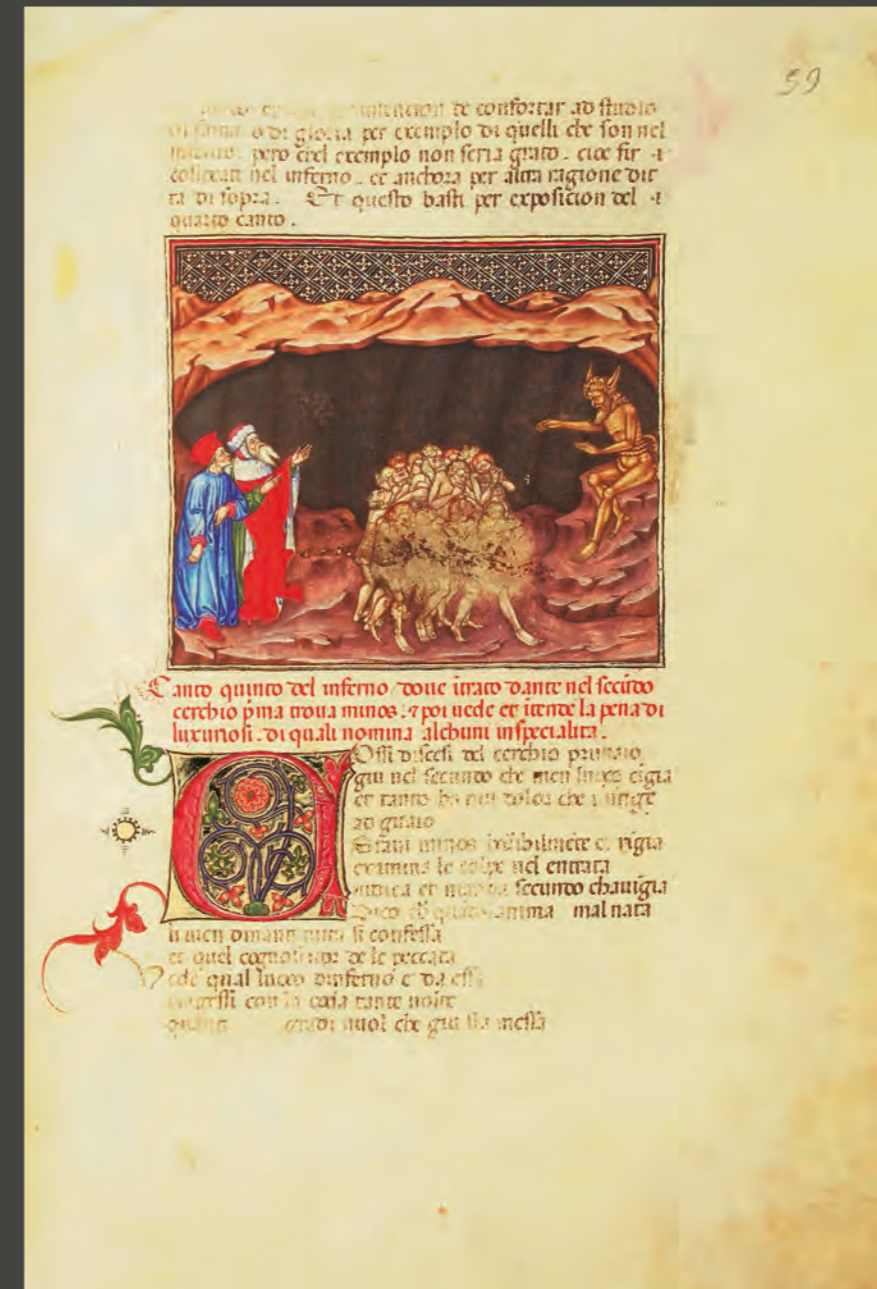 59
de confortar ad studio
o di gloria per exemplo di quelli che son nel
pero chel exemplo non seria grato . cioe sir -i
nel inferno . et anchora per altra ragione dit
ta di sopra . Et questo basti per exposicion del -i
quarto canto .
Canto quinto del inferno doue itrato dante nel secūdo
cerchio p̄ma troua minos . ⁊ poi uede et itende la pena di
luxuriosi . di quali nomina alchuni inspecialita .
Ossi discesi del cerchio primaio
giu nel secundo che men luogo cigia
et tanto piu dolor che
ad guaio
Stavi minos ringia
examina le colpe nel entrata
iudica et manda secundo chauigia
Dico anima mal nata
li uien tutta si confessa
et quel de le peccata
uede qual luoco dinferno e da essa
con la coda tante uolte
gradi uol che giu sia messa